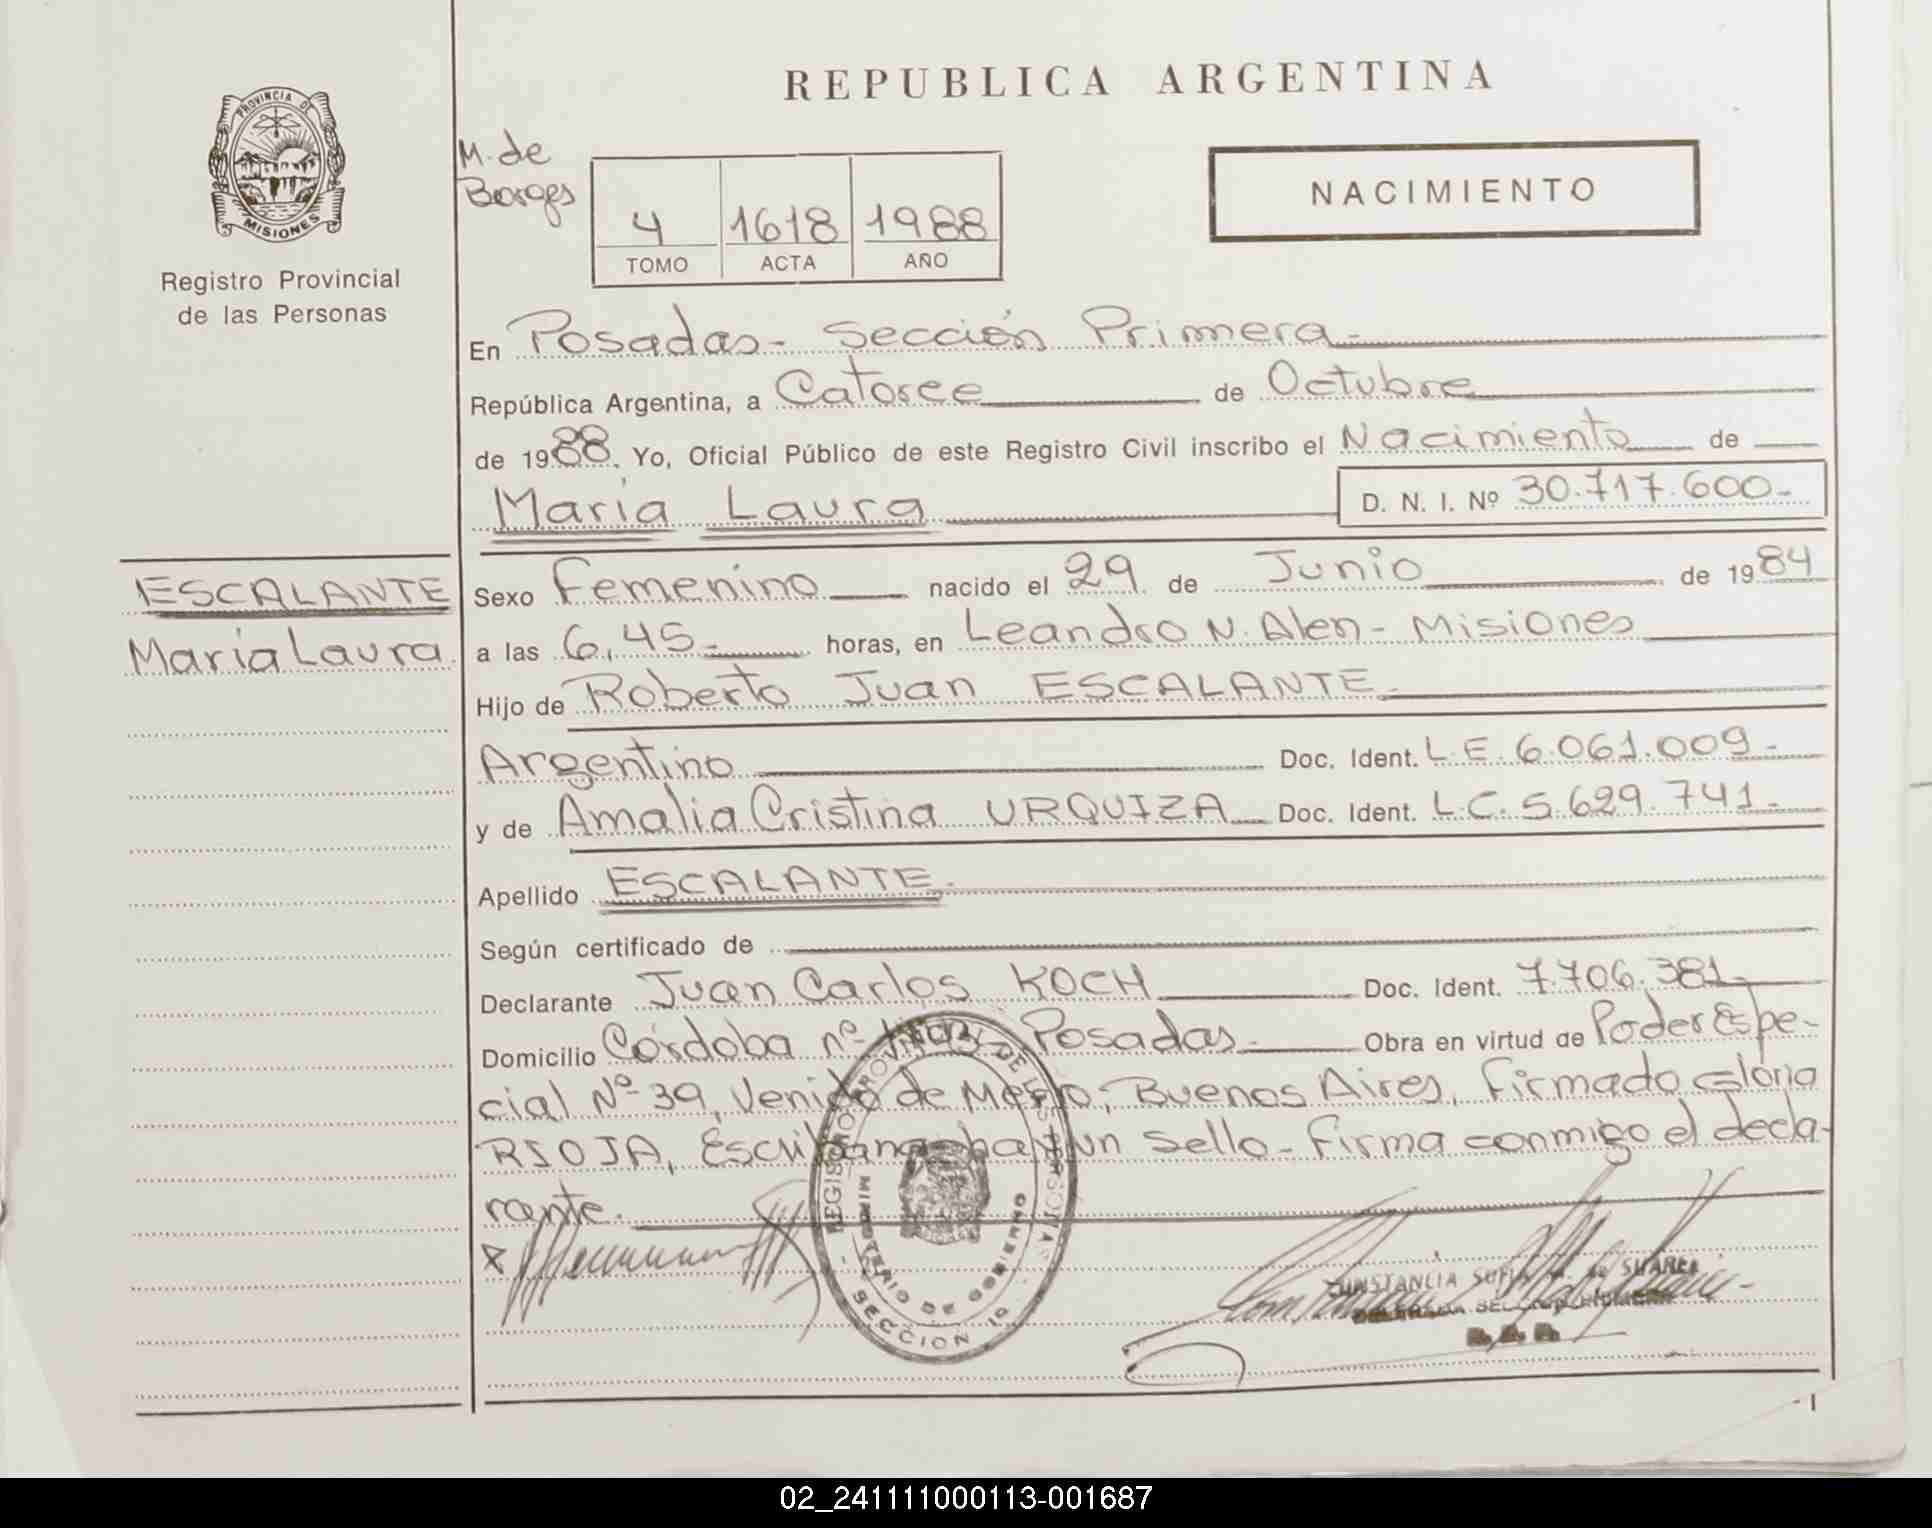 REPUBLICA ARGENTINA
PROVINCIA DE
MISIONES
Registro Provincial
de las Personas
M. de
Borges
4 1618 1988
TOMO ACTA AÑO
NACIMIENTO
En Posadas - Sección Primera -
República Argentina, a Catorce de Octubre
de 1988. Yo, Oficial Público de este Registro Civil inscribo el Nacimiento de
María Laura D. N. I. Nº 30.717.600-
ESCALANTE
María Laura.
Sexo Femenino nacido el 29 de Junio de 1984
a las 6,45 - horas, en Leandro N. Alen - Misiones
Hijo de Roberto Juan ESCALANTE -
Argentino Doc. Ident. L.E. 6.061.009 -
y de Amalia Cristina URQUIZA Doc. Ident. L.C. 5.629.741 -
Apellido ESCALANTE -
Según certificado de
Declarante Juan Carlos KOCH Doc. Ident. 7.706.381 -
Domicilio Córdoba nº Posadas - Obra en virtud de Poder Espe-
cial Nº 39, Venido de Buenos Aires, Firmado Gloria
RIOJA, un Sello - Firma conmigo el decla-
rante.
REGISTRO PROVINCIAL DE LAS PERSONAS
MINISTERIO DE GOBIERNO
SECCION 1º
CONSTANCIA de SUAREZ
02_241111000113-001687